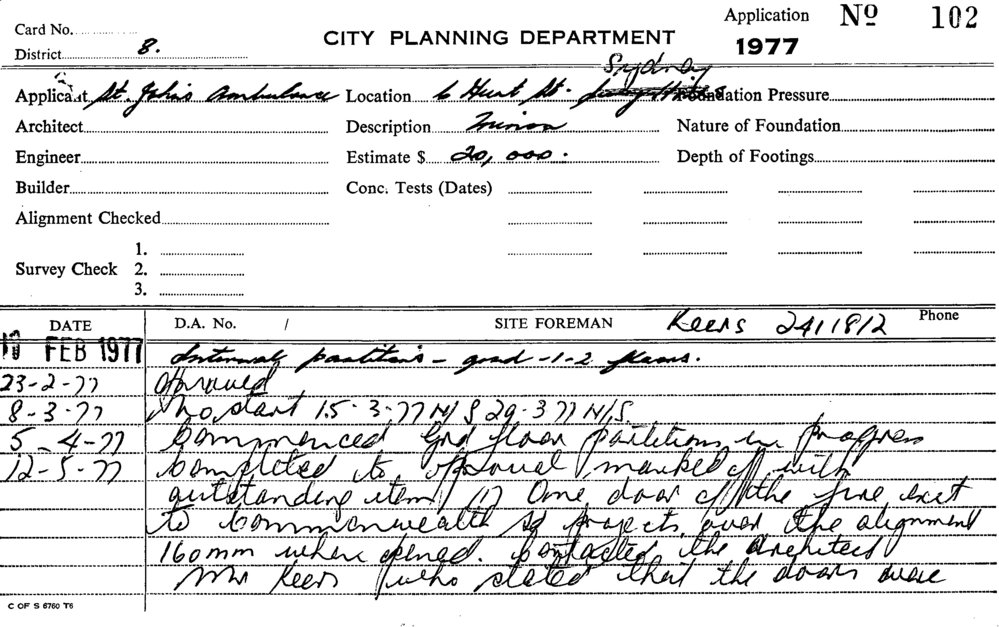 Card No.
District 8.
CITY PLANNING DEPARTMENT
Application Nº 102
1977
Sydney
Applicant St. John's Ambulance Location 6 Hunt St. Surry Hills Foundation Pressure
Architect Description Minor Nature of Foundation
Engineer Estimate $ 20,000. Depth of Footings
Builder Conc. Tests (Dates)
Alignment Checked
1.
Survey Check 2.
3.
DATE D.A. No. / SITE FOREMAN Keers 2411812 Phone
10 FEB 1977 Internal partition's - grnd -1-2 floors.
23-2-77 Approved
8-3-77 No start 15-3-77 N/S 29-3-77 N/S.
5-4-77 Commenced Grd floor partitions in progress
12-5-77 Completed to approval marked off with
outstanding item (1) One door of the fire exit
to Commonwealth St projects over the alignment
160mm when opened. Contacted the Architect
Mr Keers who stated that the doors were
C OF S 6760 T6